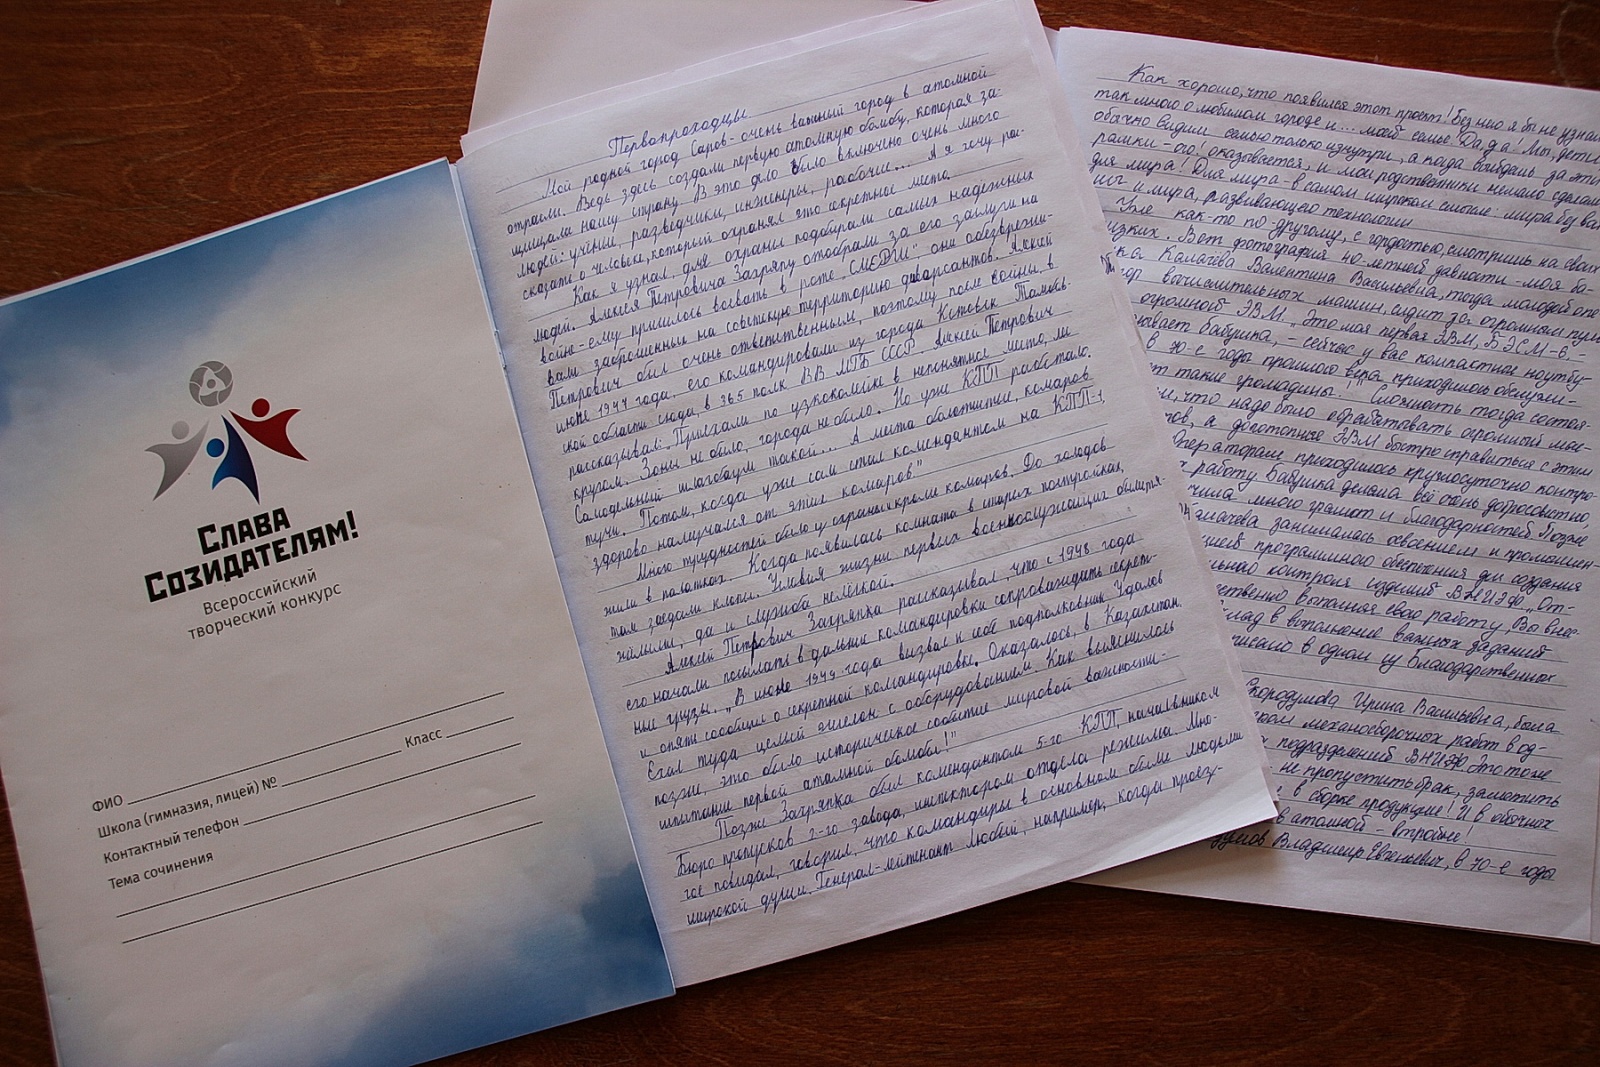 Слава
Созидателям!
Всероссийский
творческий конкурс
ФИО
Школа (гимназия, лицей) № Класс
Контактный телефон
Тема сочинения
Первопроходцы
Мой родной город Саров - очень важный город в атомной
отрасли. Ведь здесь создали первую атомную бомбу, которая за-
щищала нашу страну. В это дело было включено очень много
людей: учёные, разведчики, инженеры, рабочие... А я хочу рас-
сказать о человеке, который охранял это секретное место.
Как я узнал, для охраны подбирали самых надёжных
людей. Алексея Петровича Загряпу отобрали за его заслуги на
войне - ему пришлось воевать в роте "СМЕРШ" они обезврежи-
вали заброшенных на советскую территорию диверсантов. Алексей
Петрович был очень ответственным, поэтому после войны в
июне 1947 года, его командировали из города Котовск Тамбов-
ской области сюда, в 365 полк ВВ МГБ СССР. Алексей Петрович
рассказывал: "Приехали по узкоколейке в непонятное место, лес
кругом. Зоны не было, города не было. Но уже КПП работало.
Самодельный шлагбаум такой... А места болотистые, комаров
тучи. Потом, когда уже сам стал комендантом на КПП-1,
здорово намучался от этих комаров"
Много трудностей было у охраны и кроме комаров. До холодов
жили в палатках. Когда появилась комната в старых постройках,
там заедали клопы. Условия жизни первых военнослужащих
да и служба нелёгкой.
Алексей Петрович Загряпка рассказывал, что с 1948 года
его начали посылать в дальние командировки сопровождать секрет-
ные грузы. "В июне 1949 года вызвал к себе подполковник Удалов
и опять сообщил о секретной командировке. Оказалось, в Казахстан.
Ехал туда целый эшелон с оборудованием. Как выяснилось
позже, это было историческое событие мировой важности -
испытание первой атомной бомбы!"
Позже Загряпка был комендантом 5-го КПП, начальником
Бюро пропусков 2-го завода, инспектором отдела режима. Мно-
гое повидал, говорил, что командиры в основном были людьми
широкой души. Генерал-лейтенант любой, например, когда проез-
Как хорошо, что появился этот проект! Без него я бы не узнал
так много о любимом городе и... моей семье! Да, да! Мы, дети
обычно видим семью только изнутри, а когда выйдешь за эти
рамки - ого! оказывается, и мои родственники немало сделали
для мира! Для мира - в самом широком смысле: мира без вой
и мира, развивающего технологии
Уже как-то по-другому, с гордостью, смотришь на своих
зких. Вот фотография 40-летней давности - моя ба-
ка Калачёва Валентина Васильевна, тогда молодой опе
тор вычислительных машин сидит за огромным пуль
огромной ЭВМ. "Это моя первая ЭВМ, БЭСМ-6, -
зывает бабушка, - сейчас у вас компактное ноутбу
в 70-е годы прошлого века приходилось обслужи-
такие громадины!" Сложность тогда состоя-
что надо было обрабатывать огромный мас-
ов, а допотопные ЭВМ быстро справиться с этим
Операторам приходилось круглосуточно контро-
работу. Бабушка делала всё очень добросовестно,
чила много грамот и благодарностей. Позже
Калачёва занималась освоением и промышлен-
цией программного обеспечения для создания
льного контроля изделий ВНИИЭФ. "От-
етственно выполняя свою работу, Вы внес-
клад в выполнение важных заданий
в одном из благодарственных
Скородумова Ирина Васильевна, была
механосборочных работ в од-
подразделений ВНИИЭФ. Это тоже
- не пропустить брак, заметить
в сборке продукции! И в обычных
в атомной - втройне!
Владимир Евгеньевич, в 70-е годы